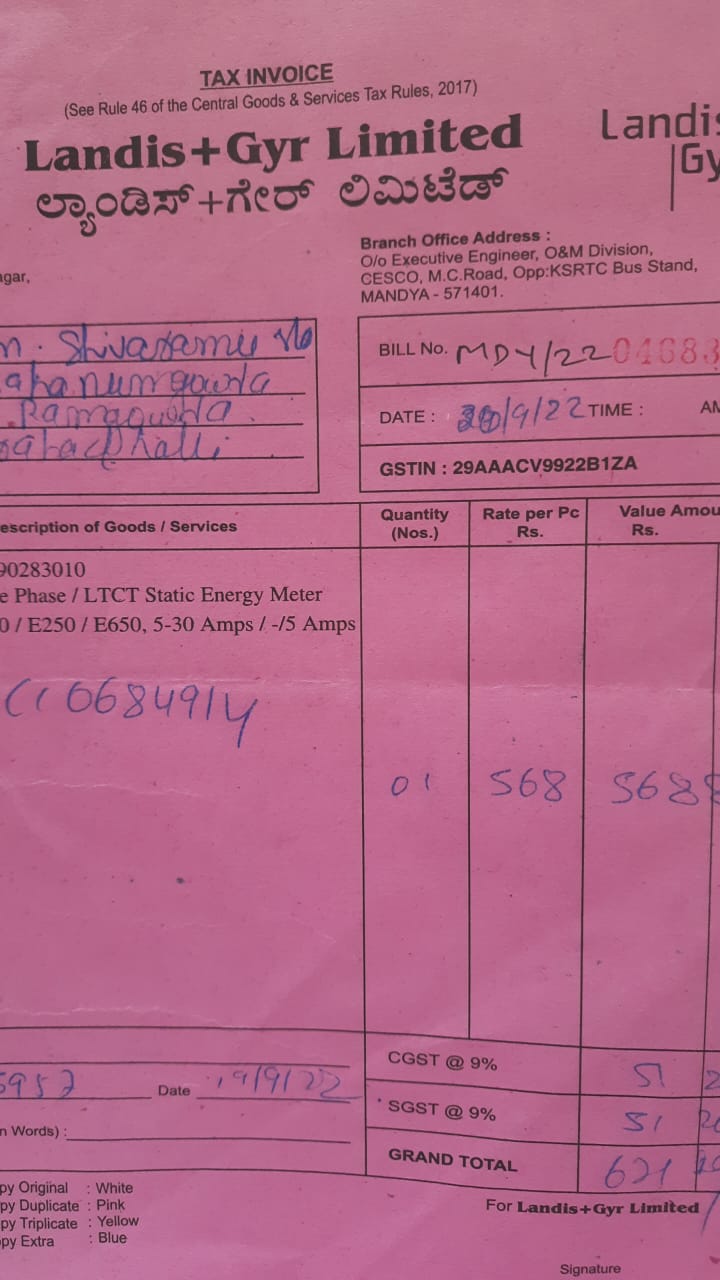 TAX INVOICE
(See Rule 46 of the Central Goods & Services Tax Rules, 2017)
Landis+Gyr Limited
Landis
Gy
ಲ್ಯಾಂಡಿಸ್+ಗೇರ್ ಲಿಮಿಟೆಡ್
agar,
Branch Office Address :
O/o Executive Engineer, O&M Division,
CESCO, M.C.Road, Opp:KSRTC Bus Stand,
MANDYA - 571401.
n. Shivaramu s/o
Ramagowda
BILL No. MDY/22 04683
DATE : /9/22 TIME : AM
GSTIN : 29AAACV9922B1ZA
escription of Goods / Services
Quantity (Nos.)
Rate per Pc Rs.
Value Amou Rs.
90283010
e Phase / LTCT Static Energy Meter
0 / E250 / E650, 5-30 Amps / -/5 Amps
10684914
01 568 568
CGST @ 9% 51
Date 19/9/22
SGST @ 9% 51
n Words) :
GRAND TOTAL
py Original : White
py Duplicate : Pink
py Triplicate : Yellow
py Extra : Blue
For Landis+Gyr Limited
Signature